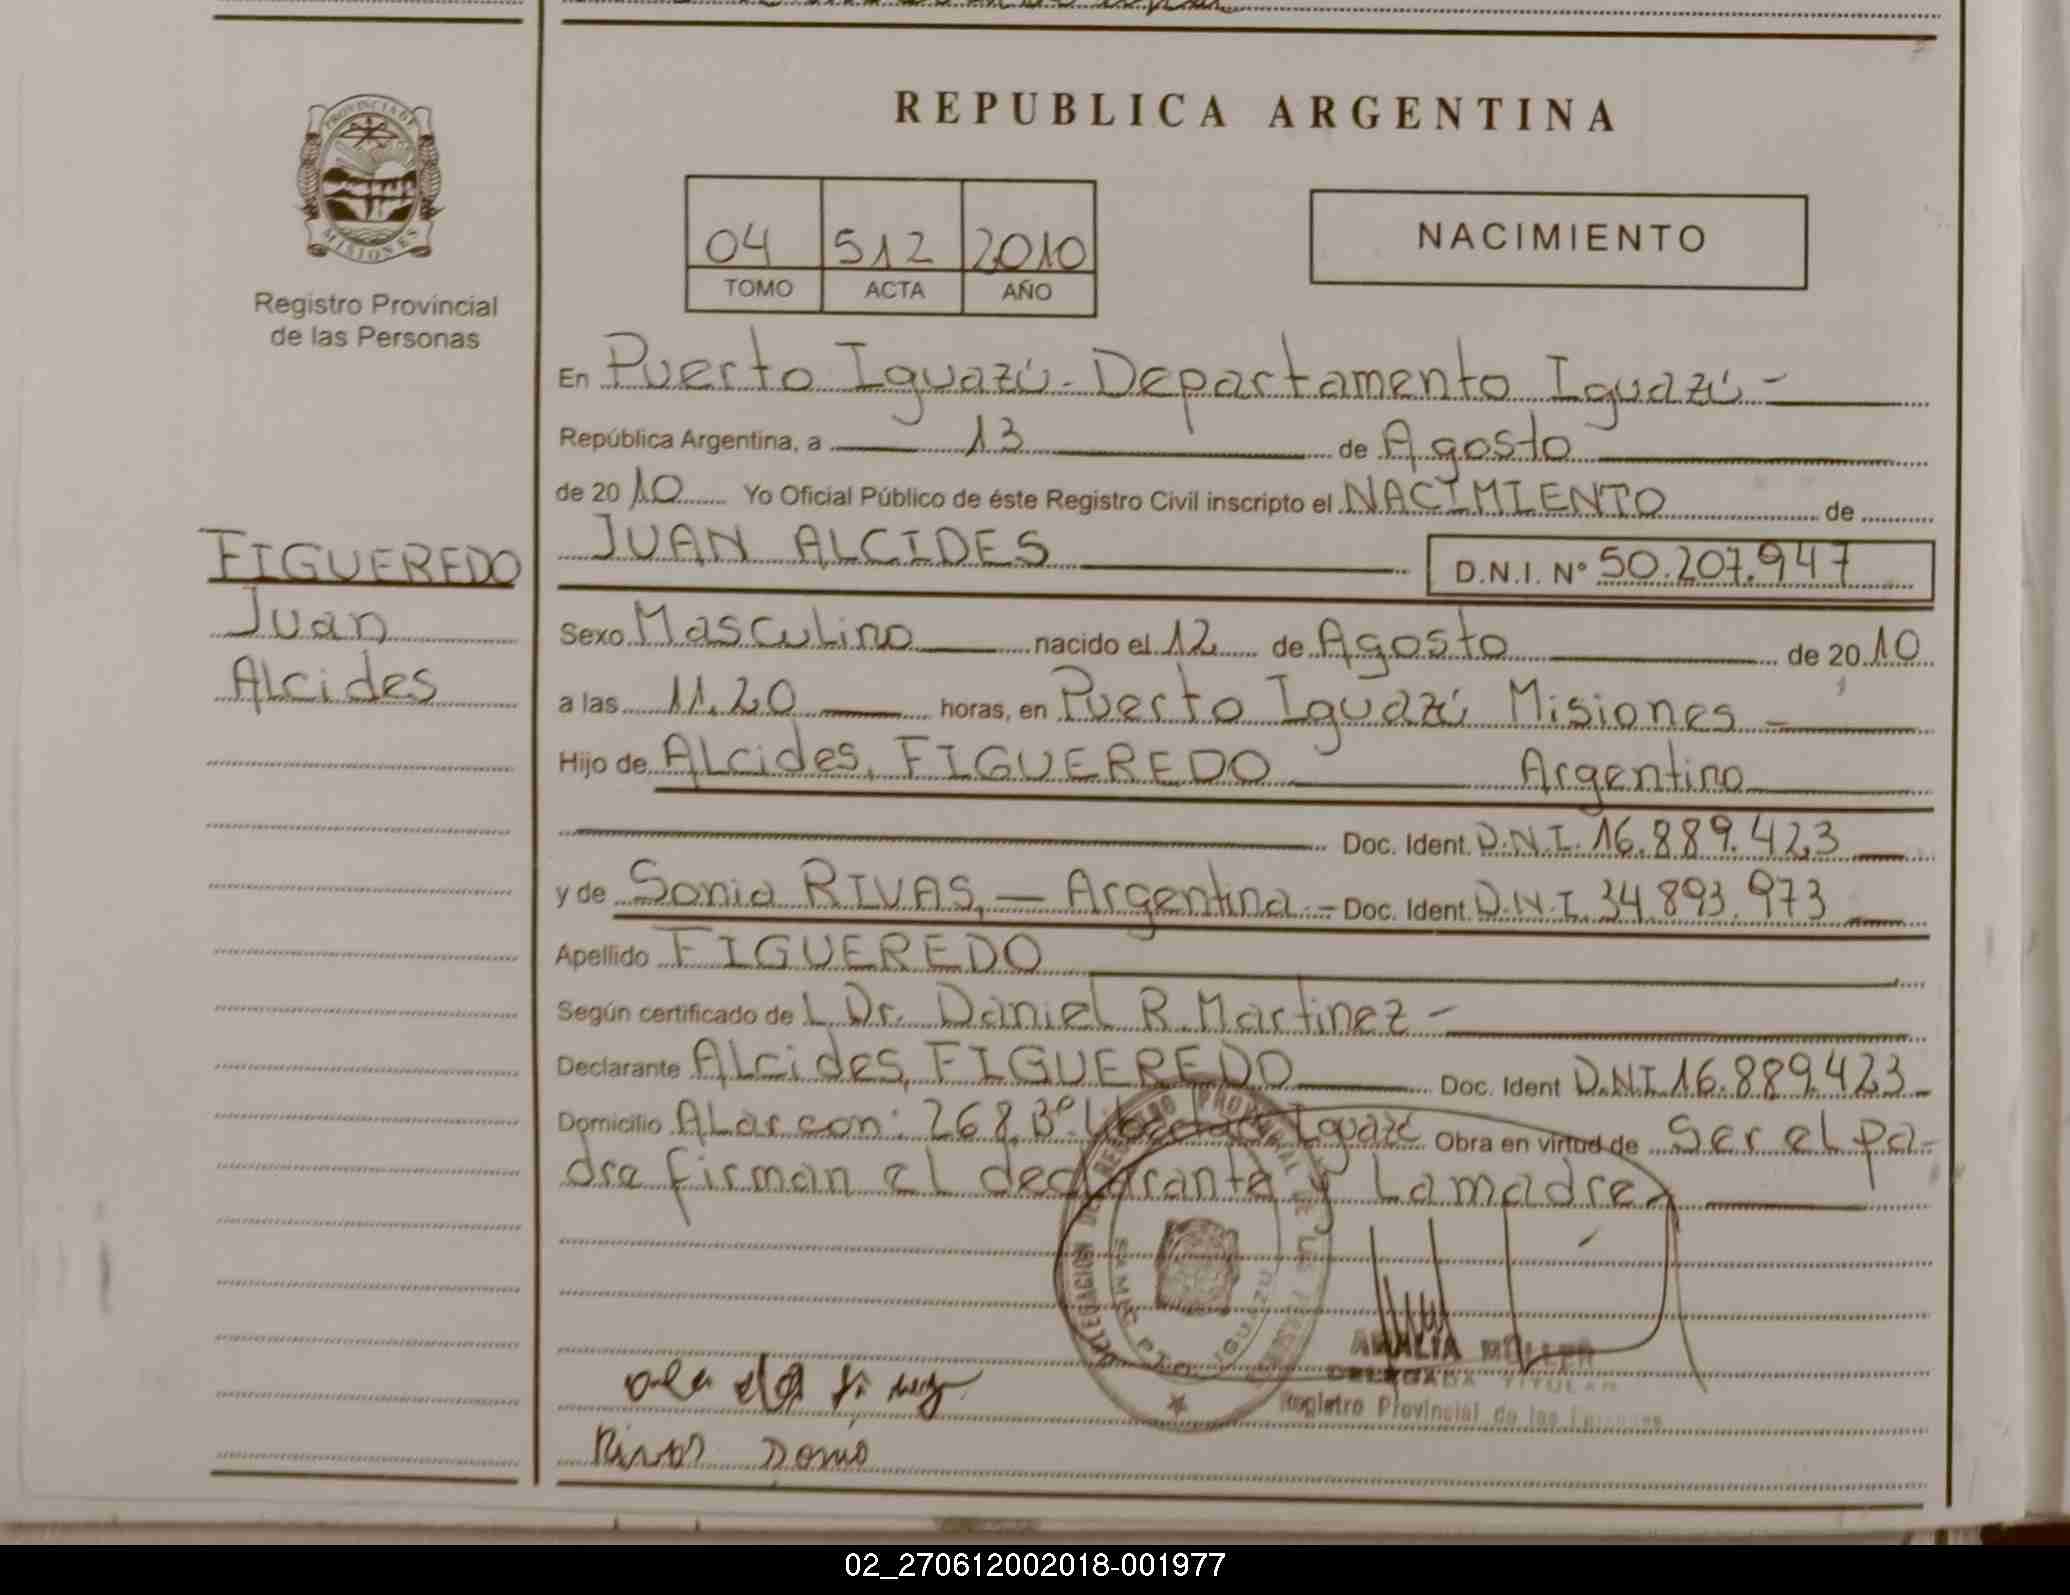 REPUBLICA ARGENTINA
PROVINCIA DE
MISIONES
Registro Provincial
de las Personas
04 512 2010
TOMO ACTA AÑO
NACIMIENTO
En Puerto Iguazú - Departamento Iguazú -
República Argentina, a 13 de Agosto
de 2010 Yo Oficial Público de éste Registro Civil inscripto el NACIMIENTO de
JUAN ALCIDES D.N.I. N° 50.207.947
FIGUEREDO
Juan
Alcides
Sexo Masculino nacido el 12 de Agosto de 2010
a las 11.20 horas, en Puerto Iguazú Misiones -
Hijo de Alcides, FIGUEREDO Argentino
Doc. Ident. D.N.I. 16.889.423
y de Sonia RIVAS, - Argentina - Doc. Ident. D.N.I. 34.893.973
Apellido FIGUEREDO
Según certificado de L Dr. Daniel R. Martinez -
Declarante Alcides, FIGUEREDO Doc. Ident D.N.I 16.889.423
Domicilio Alarcon: 268 B° Iguazú Obra en virtud de Ser el pa-
dre firman el declarante y La madre.
DELEGACION DEL REGISTRO PROVINCIAL DE LAS
PTO IGUAZU
AMALIA MÜLLER
DELEGADA TITULAR
Registro Provincial de las Personas
Rivas Sonia
02_270612002018-001977